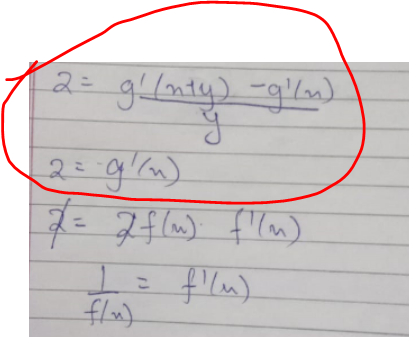 2 = g'(x+y) - g'(x) / y
2 = g'(x)
2 = 2f(x) · f'(x)
1/f(x) = f'(x)